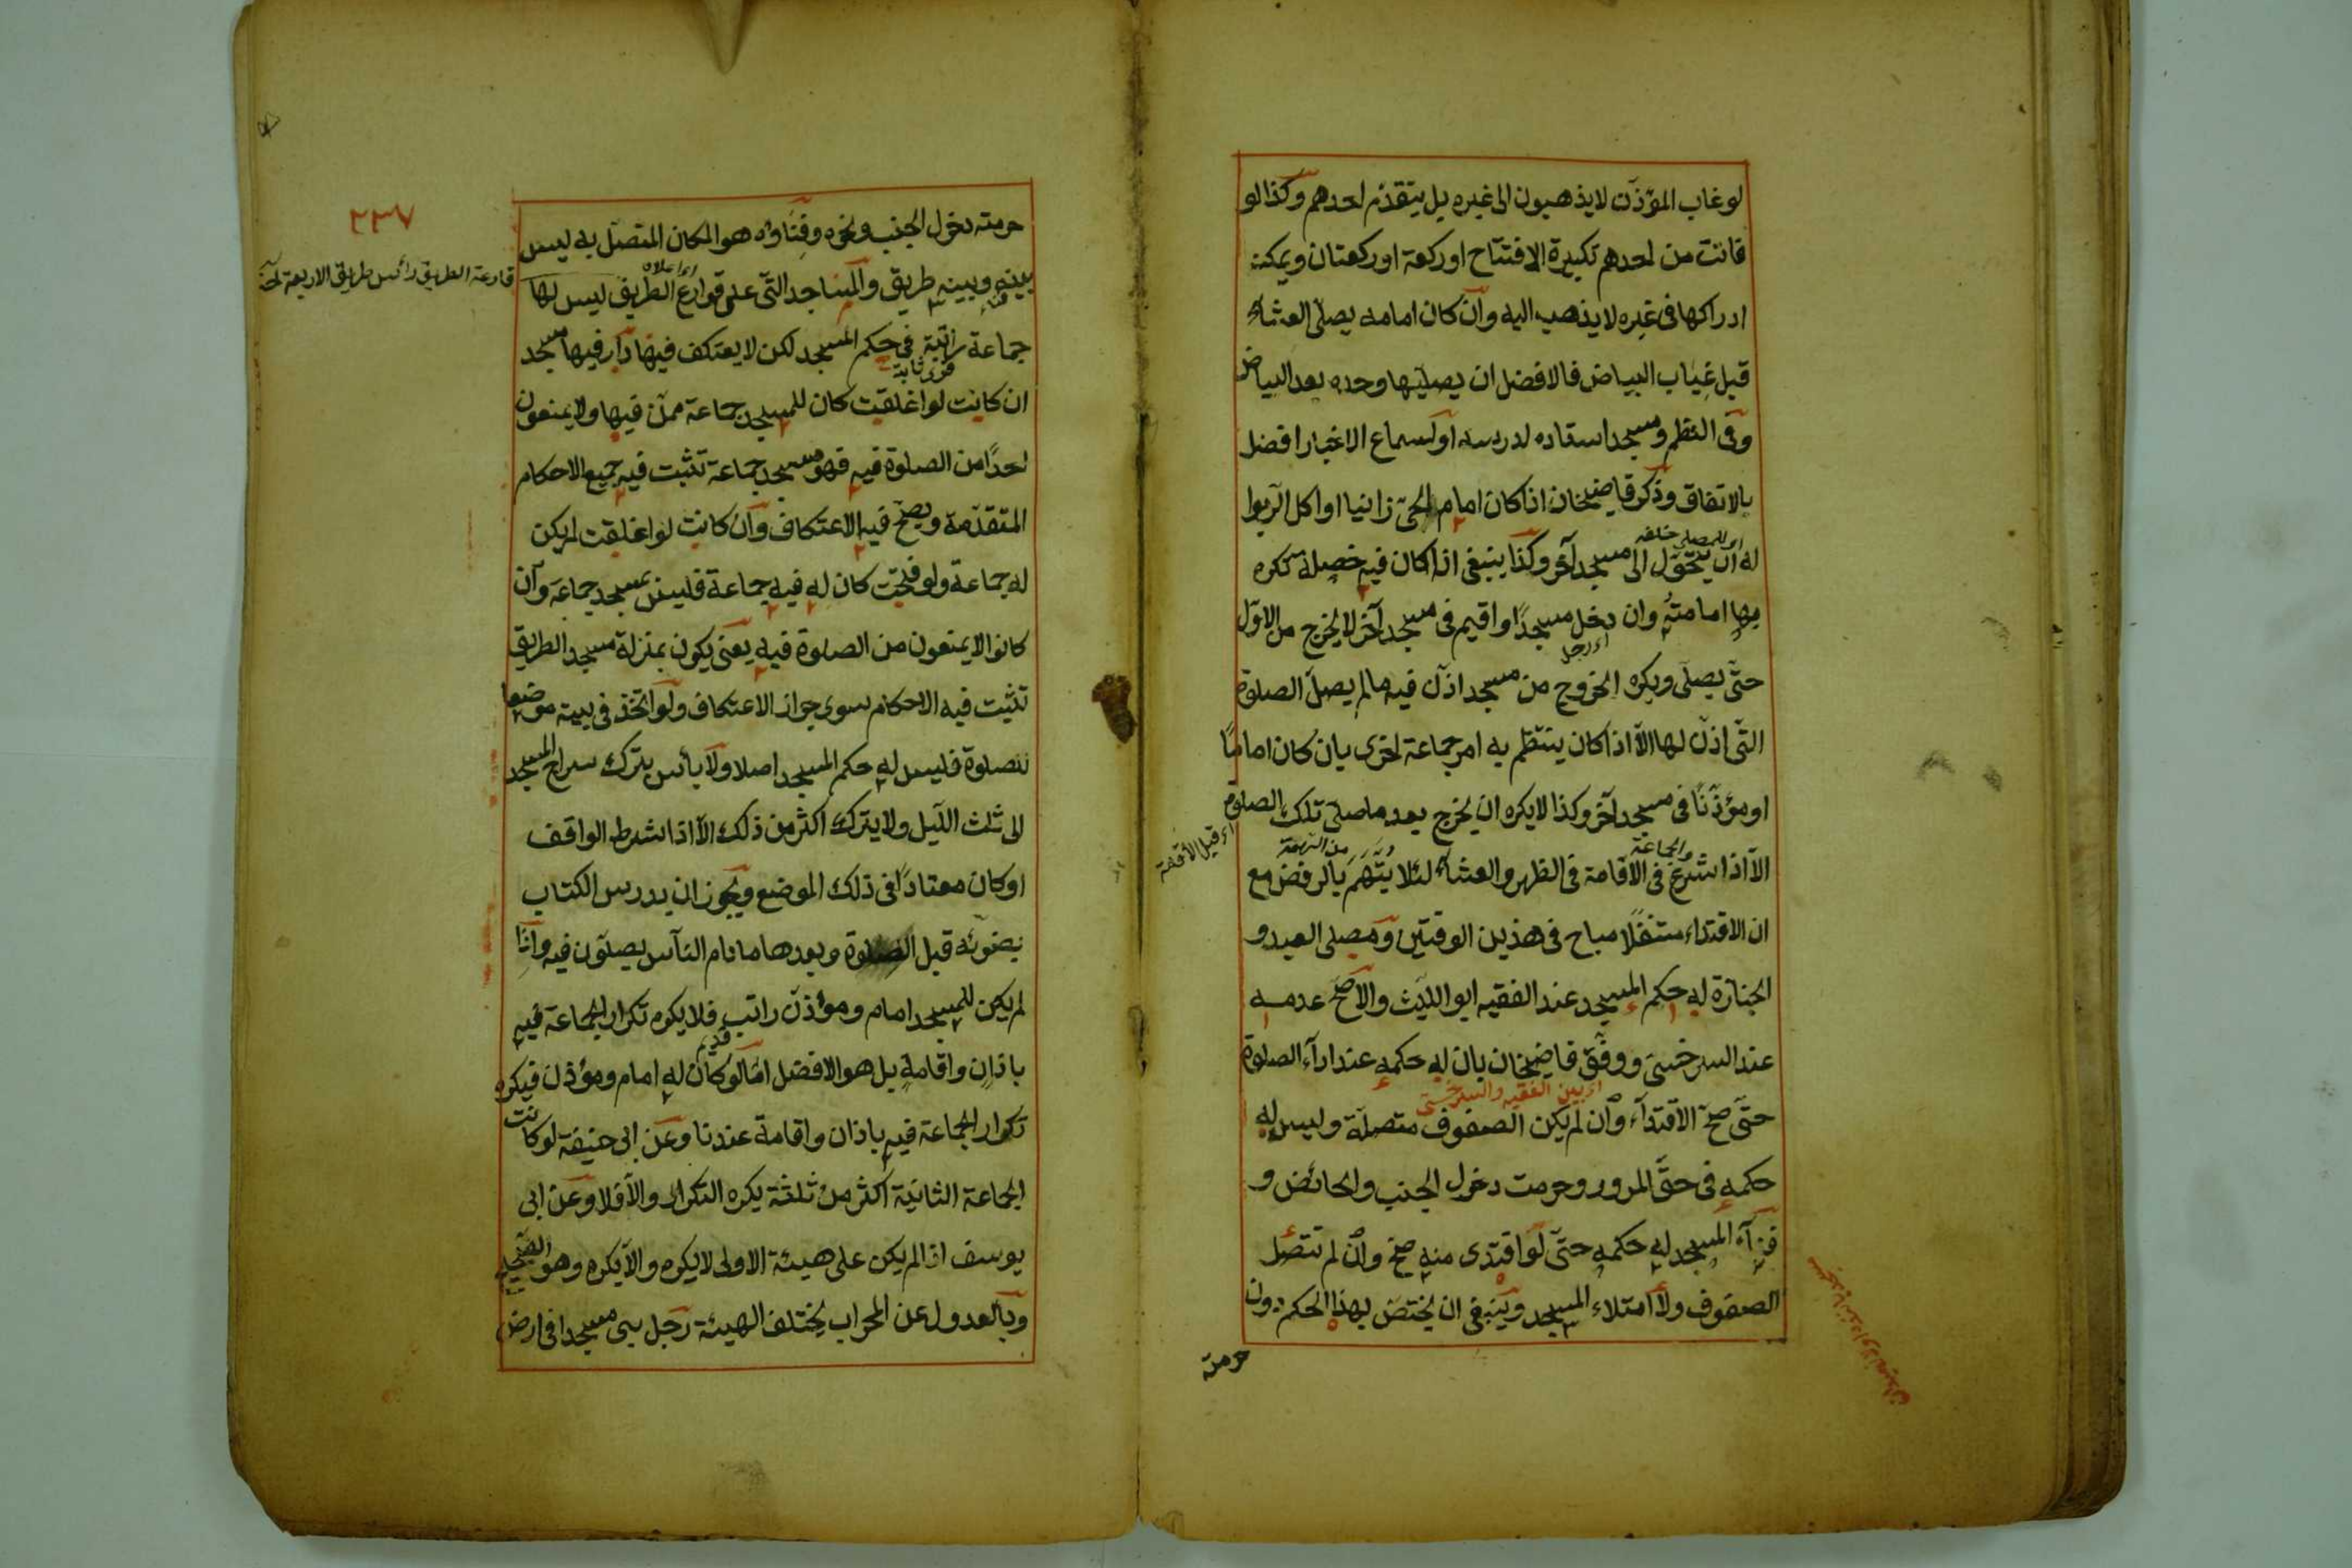 لو غاب المؤذن لا يذهبون الى غيره بل يتقدم احدهم وكذا لو
فاتت من احدهم تكبيرة الافتتاح او ركعة او ركعتان ويمكنه
ادراكها فى غيره لا يذهب اليه وان كان امامه يصلى العشاء
قبل غياب البياض فالافضل ان يصليها وحده بعد البياض
وفى النظم ومسجد استاده لدرسه او لسماع الاخبار افضل
بالاتفاق وذكر قاضيخان اذا كان امام الحى زانيا او اكل الربوا
اى للمصلى خلفه
له ان يتحول الى مسجد آخر وكذا ينبغى اذا كان فيه خصلة تكره
بها امامته وان دخل مسجدًا واقيم فى مسجد آخر لا يخرج من الاول
اى رجل
حتى يصلى ويكره الخروج من مسجد اذن فيه ما لم يصل الصلوة
التى اذن لها الا اذا كان ينتظم به امر جماعة اخرى بان كان امامًا
او مؤذنًا فى مسجد آخر وكذا لا يكره ان يخرج بعد ما صلى تلك الصلوة
اى قبل الاقامة
والجماعة
من التهمة
الا اذا شرع فى الاقامة فى الظهر والعشاء لئلا يتهم بالرفض مع
ان الاقتداء متنفلًا مباح فى هذين الوقتين ومصلى العيد و
الجنازة له حكم المسجد عند الفقيه ابو الليث والاصح عدمه
عند السرخسى ووفق قاضيخان بان له حكمه عند اداء الصلوة
اى بين الفقيه والسرخسى
حتى صح الاقتداء وان لم يكن الصفوف متصلة وليس له
حكمه فى حق المرور وحرمت دخول الجنب والحائض و
فناء المسجد له حكمه حتى لو اقتدى منه صح وان لم تتصل
الصفوف ولا امتلاء المسجد وينبغى ان يختص بهذا الحكم دون
حرمة
٢٣٧
حرمته دخول الجنب ونحوه وفناؤه هو المكان المتصل به ليس
بينه وبينه طريق والمساجد التى على قوارع الطريق ليس لها
اى اعلاه
قارعة الطريق رأس طريق الاربعة
جماعة راتبة فى حكم المسجد لكن لا يعتكف فيها دار فيها مسجد
ان كانت لو اغلقت كان للمسجد جماعة ممن فيها ولا يمنعون
احدًا من الصلوة فيه فهو مسجد جماعة تثبت فيه جميع الاحكام
المتقدمة ويصح فيه الاعتكاف وان كانت لو اغلقت لم يكن
له جماعة ولو فتحت كان له فيه جماعة فليس بمسجد جماعة وان
كانوا لا يمنعون من الصلوة فيه يعنى يكون بمنزلة مسجد الطريق
تثبت فيه الاحكام سوى جواز الاعتكاف ولو اتخذ فى بيته موضعا
للصلوة فليس له حكم المسجد اصلا ولا بأس بترك سراج المسجد
الى ثلث الليل ولا يترك اكثر من ذلك الا اذا شرط الواقف
او كان معتادًا فى ذلك الموضع ويجوز ان يدرس الكتاب
بضوئه قبل الصلوة وبعدها ما دام الناس يصلون فيه واذا
لم يكن للمسجد امام ومؤذن راتب فلا يكره تكرار الجماعة فيه
باذان واقامة بل هو الافضل اما لو كان له امام ومؤذن فيكره
تكرار الجماعة فيه باذان واقامة عندنا وعن ابى حنيفة لو كانت
الجماعة الثانية اكثر من ثلثة يكره التكرار والا فلا وعن ابى
يوسف اذا لم يكن على هيئة الاولى لا يكره والا يكره وهو الصحيح
وبالعدول عن المحراب يختلف الهيئة رجل بنى مسجدا فى ارض